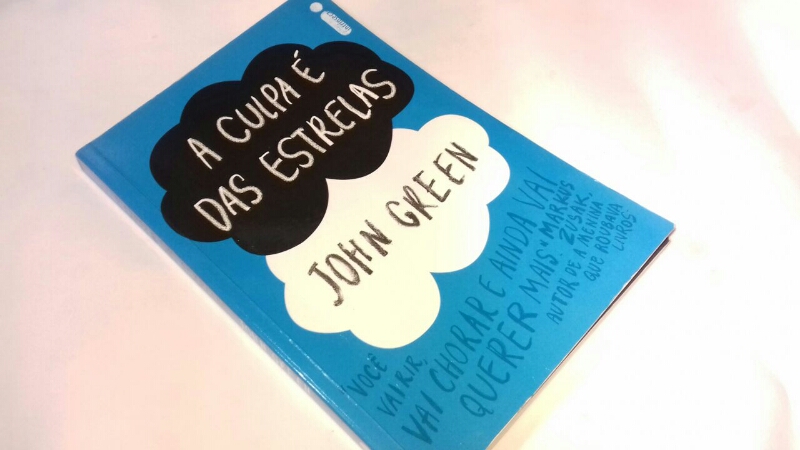 intrínseca
A CULPA É
DAS ESTRELAS
JOHN GREEN
"VOCÊ
VAI RIR,
VAI CHORAR E AINDA VAI
QUERER MAIS" MARKUS
ZUSAK,
AUTOR DE A MENINA
QUE ROUBAVA
LIVROS